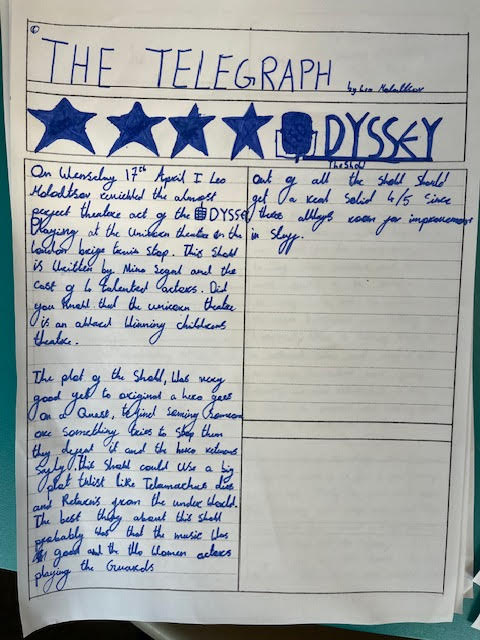 THE TELEGRAPH
by Leo Molodtsov
ODYSSEY
The Show
On Wenselay 17th April I Leo
Molodtsov reviewed the almost
perject theatre act of the ODYSSEY
Playing at the Unicorn theatre on the
london brige train stop. This Show
is Written by Nina Segal and the
cast of 6 talented actors. Did
you know that the unicorn theatre
is an award winning childrens
theatre.
The plot of the Show, Was very
good yet to original a hero goes
on a Quest, to find someone
one something tries to stop them
they defeat it and the hero returns
this show could use a big
plot twist like Telamachus dies
and from the under world.
The best thing about this show
probably was that the music Was
good and the two women actors
playing the Guards
Out of all the show should
get a real solid 4/5 since
theres room for improvement
in